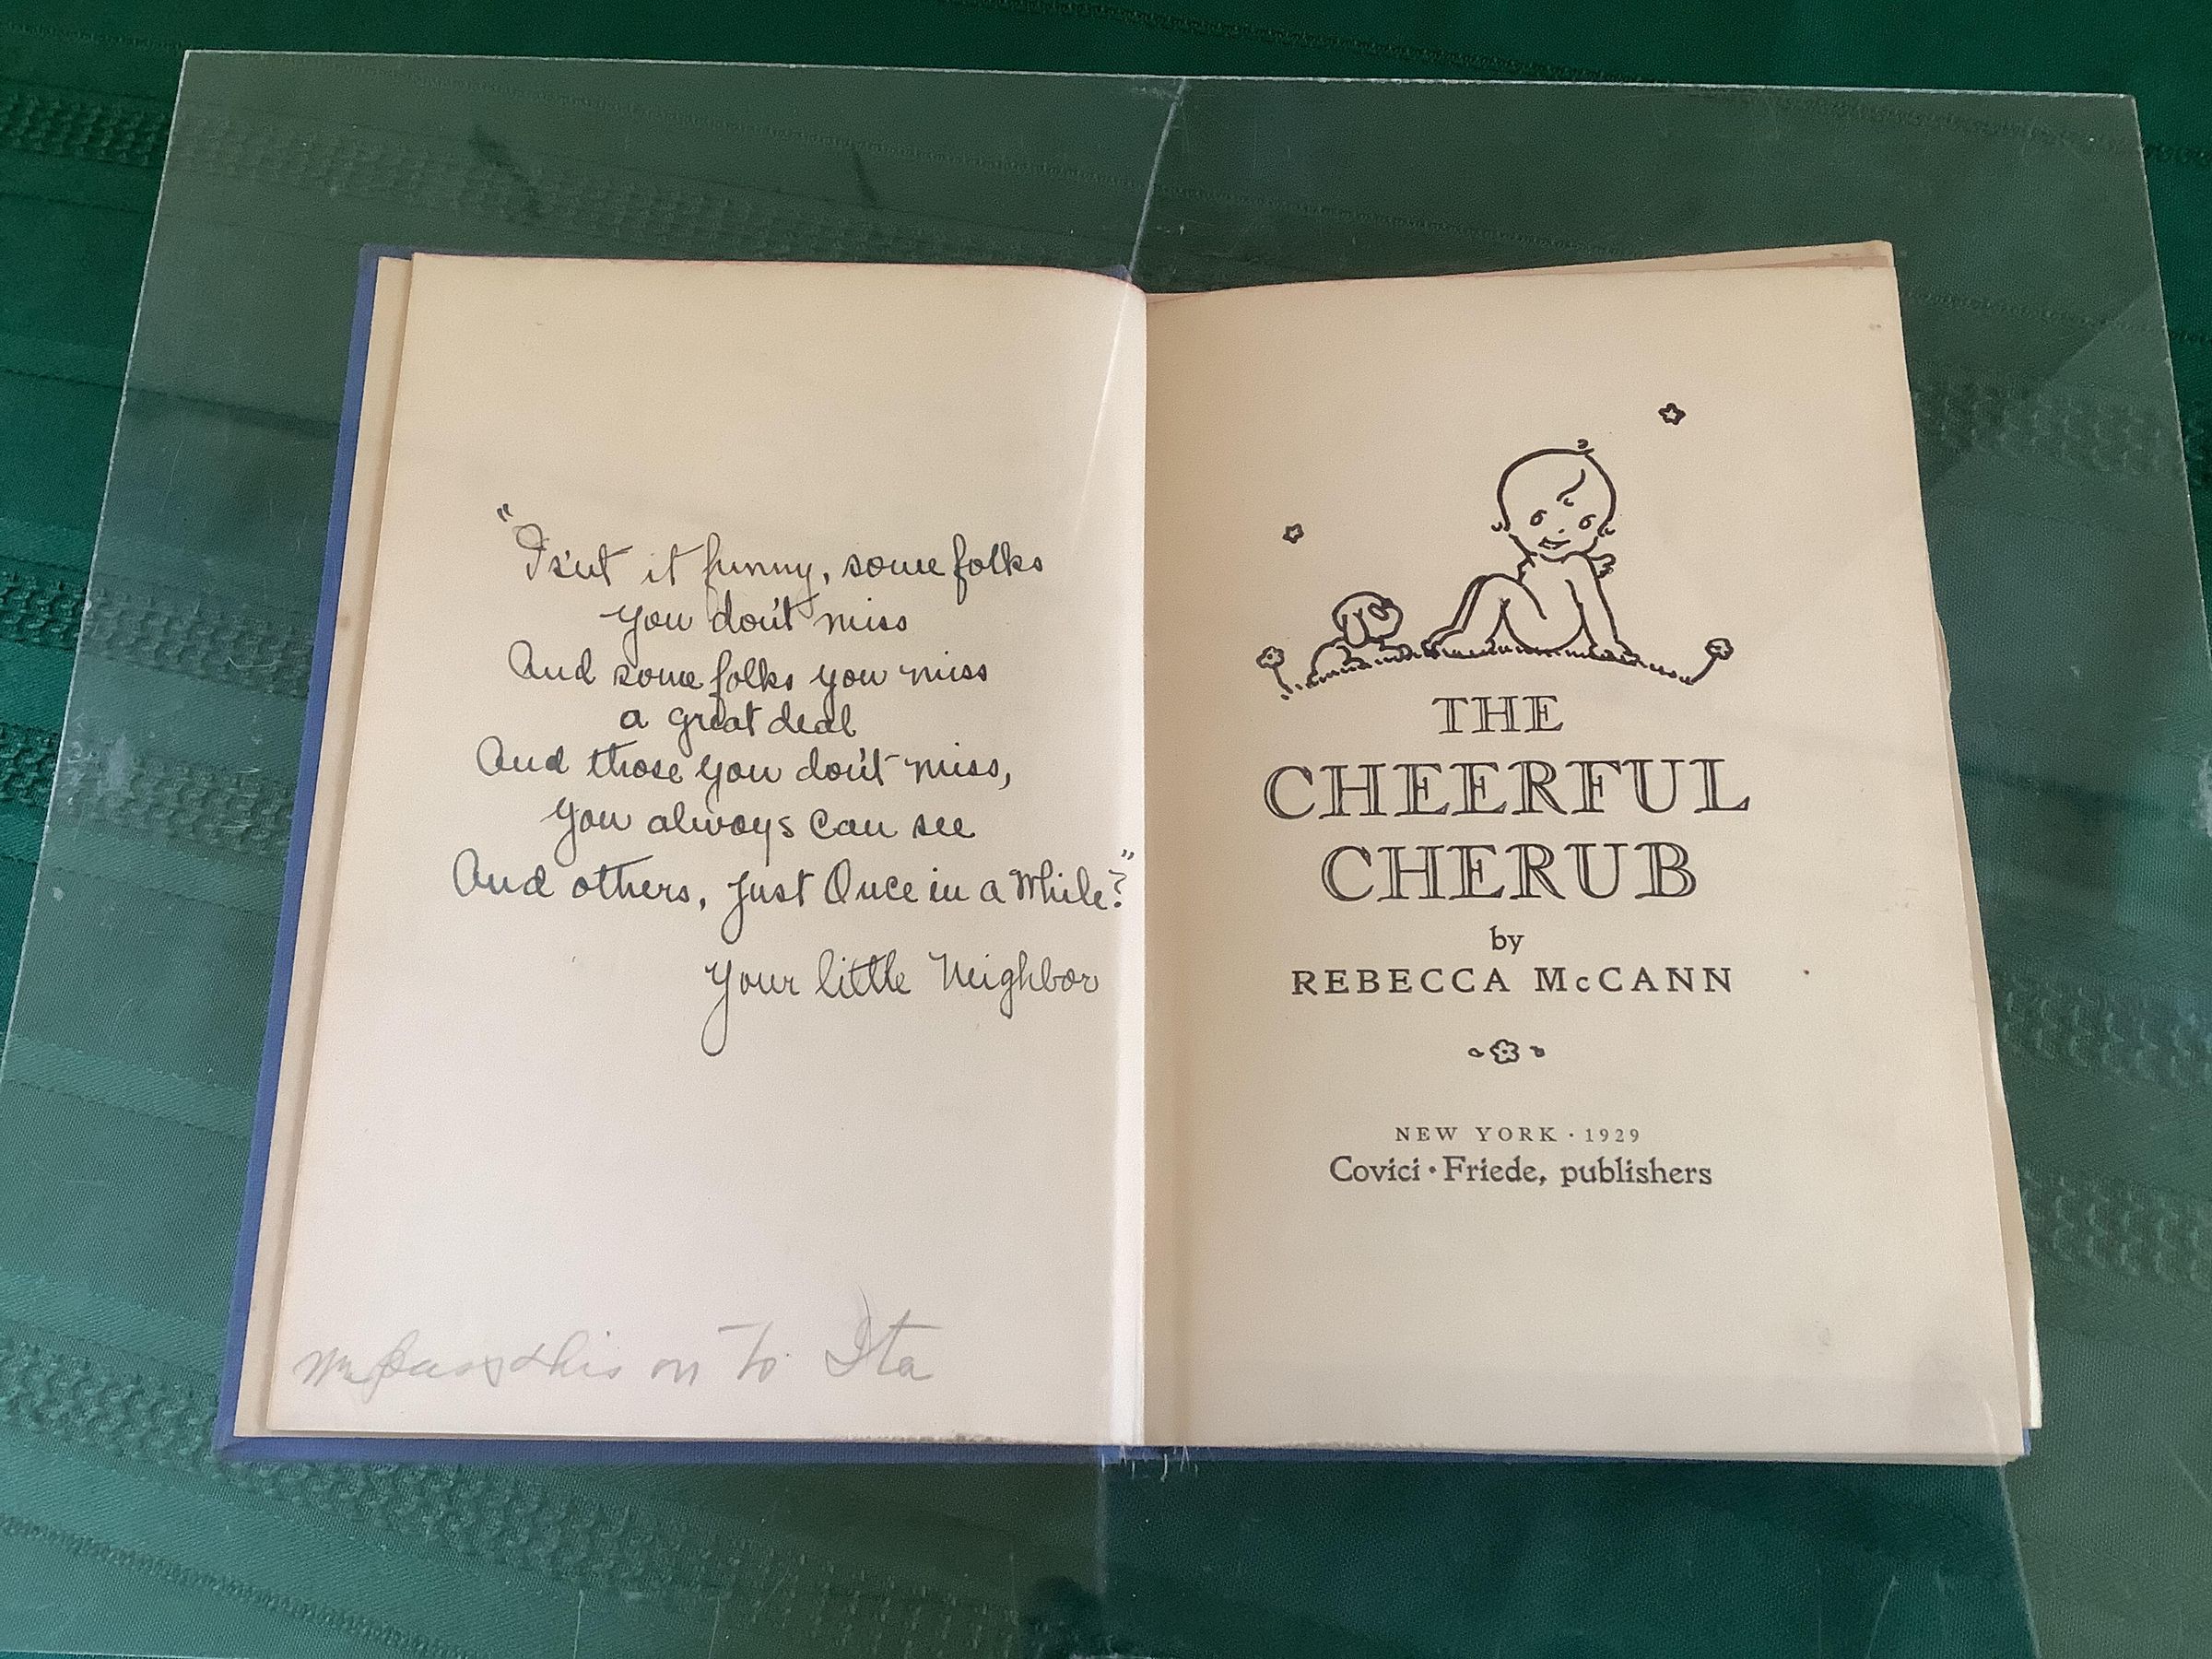 "Is'nt it funny, some folks
you don't miss
And some folks you miss
a great deal
And those you don't miss,
you always can see
And others, just Once in a While?"
Your little Neighbor
pass this on to Ita
THE
CHEERFUL
CHERUB
by
REBECCA McCANN
NEW YORK · 1929
Covici · Friede, publishers